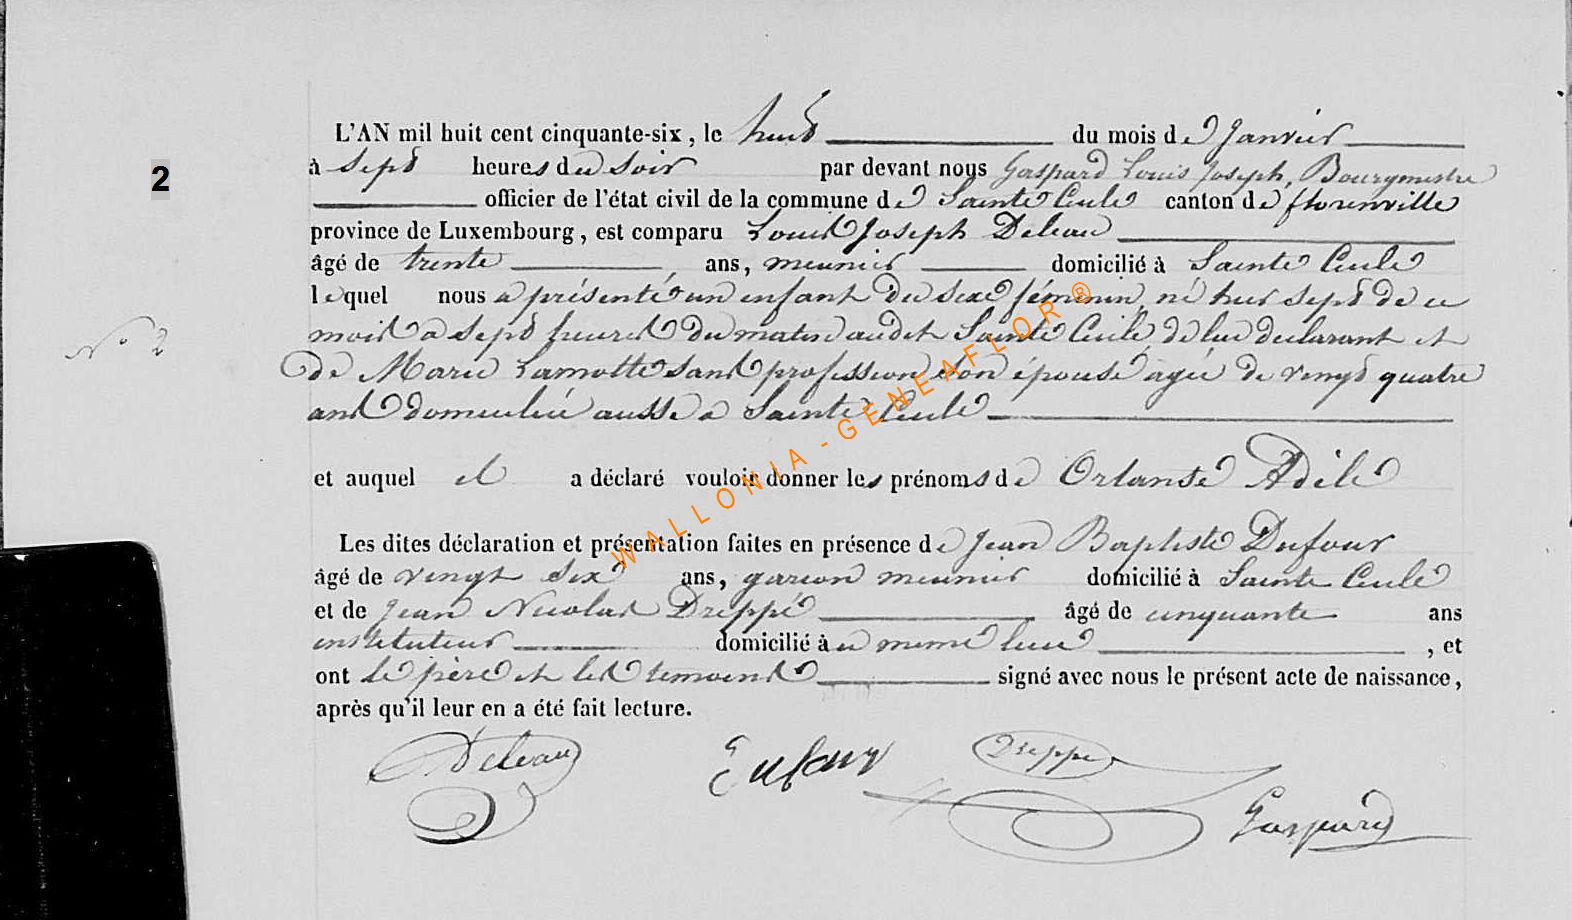 L'AN mil huit cent cinquante-six, le huit du mois de Janvier
2
à sept heures du soir par devant nous Gaspard Louis Joseph, Bourgmestre
officier de l'état civil de la commune de Sainte Cecile canton de florenville
province de Luxembourg, est comparu Louis Joseph Deleau
âgé de trente ans, meunier domicilié à Sainte Cecile
lequel nous a présenté un enfant du sexe féminin, né hier sept de ce
mois a sept heures du matin audit Sainte Cecile, de lui declarant et
N° 2
de Marie Lamotte sans profession son épouse agée de vingt quatre
ans domiciliée aussi a Sainte Cecile
et auquel il a déclaré vouloir donner les prénoms de Orlanse Adile
Les dites déclaration et présentation faites en présence de Jean Baptiste Dufour
âgé de vingt six ans, garcon meunier domicilié à Sainte Cecile
et de Jean Nicolas Dreppé âgé de cinquante ans
instituteur domicilié à ce meme lieu, et
ont le père et les temoins signé avec nous le présent acte de naissance,
après qu'il leur en a été fait lecture.
Deleau Dufour Dreppe
Gaspard
WALLONIA - GENEAFLOR ®